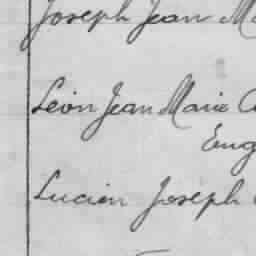 Joseph Jean M
Léon Jean Marie
Eug
Lucien Joseph